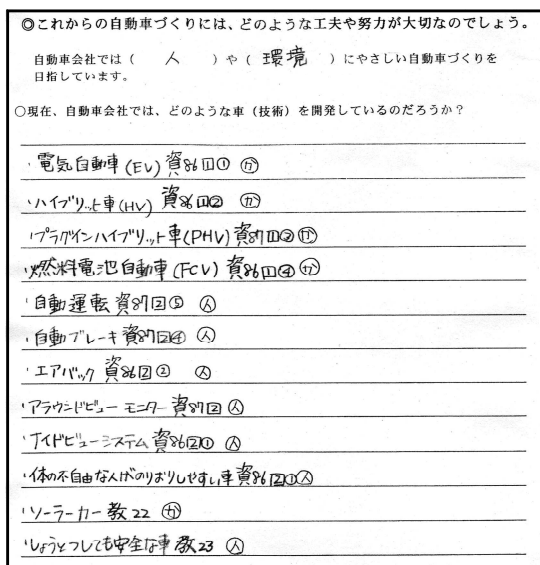 ◎これからの自動車づくりには、どのような工夫や努力が大切なのでしょう。
自動車会社では（ 人 ）や（ 環境 ）にやさしい自動車づくりを
目指しています。
○現在、自動車会社では、どのような車（技術）を開発しているのだろうか？
・電気自動車(EV) 資86 1 ① ㋕
・ハイブリット車(HV) 資86 1 ② ㋕
・プラグインハイブリット車(PHV) 資87 1 ② ㋕
・燃料電池自動車(FCV) 資86 1 ④ ㋕
・自動運転 資87 2 ⑤ 人
・自動ブレーキ 資87 2 ④ 人
・エアバック 資86 2 ② 人
・アラウンドビューモニター 資87 2 人
・ナイトビューシステム 資86 2 ① 人
・体の不自由な人がのりおりしやすい車 資86 2 ① 人
・ソーラーカー 教22 ㋕
・しょうとつしても安全な車 教23 人